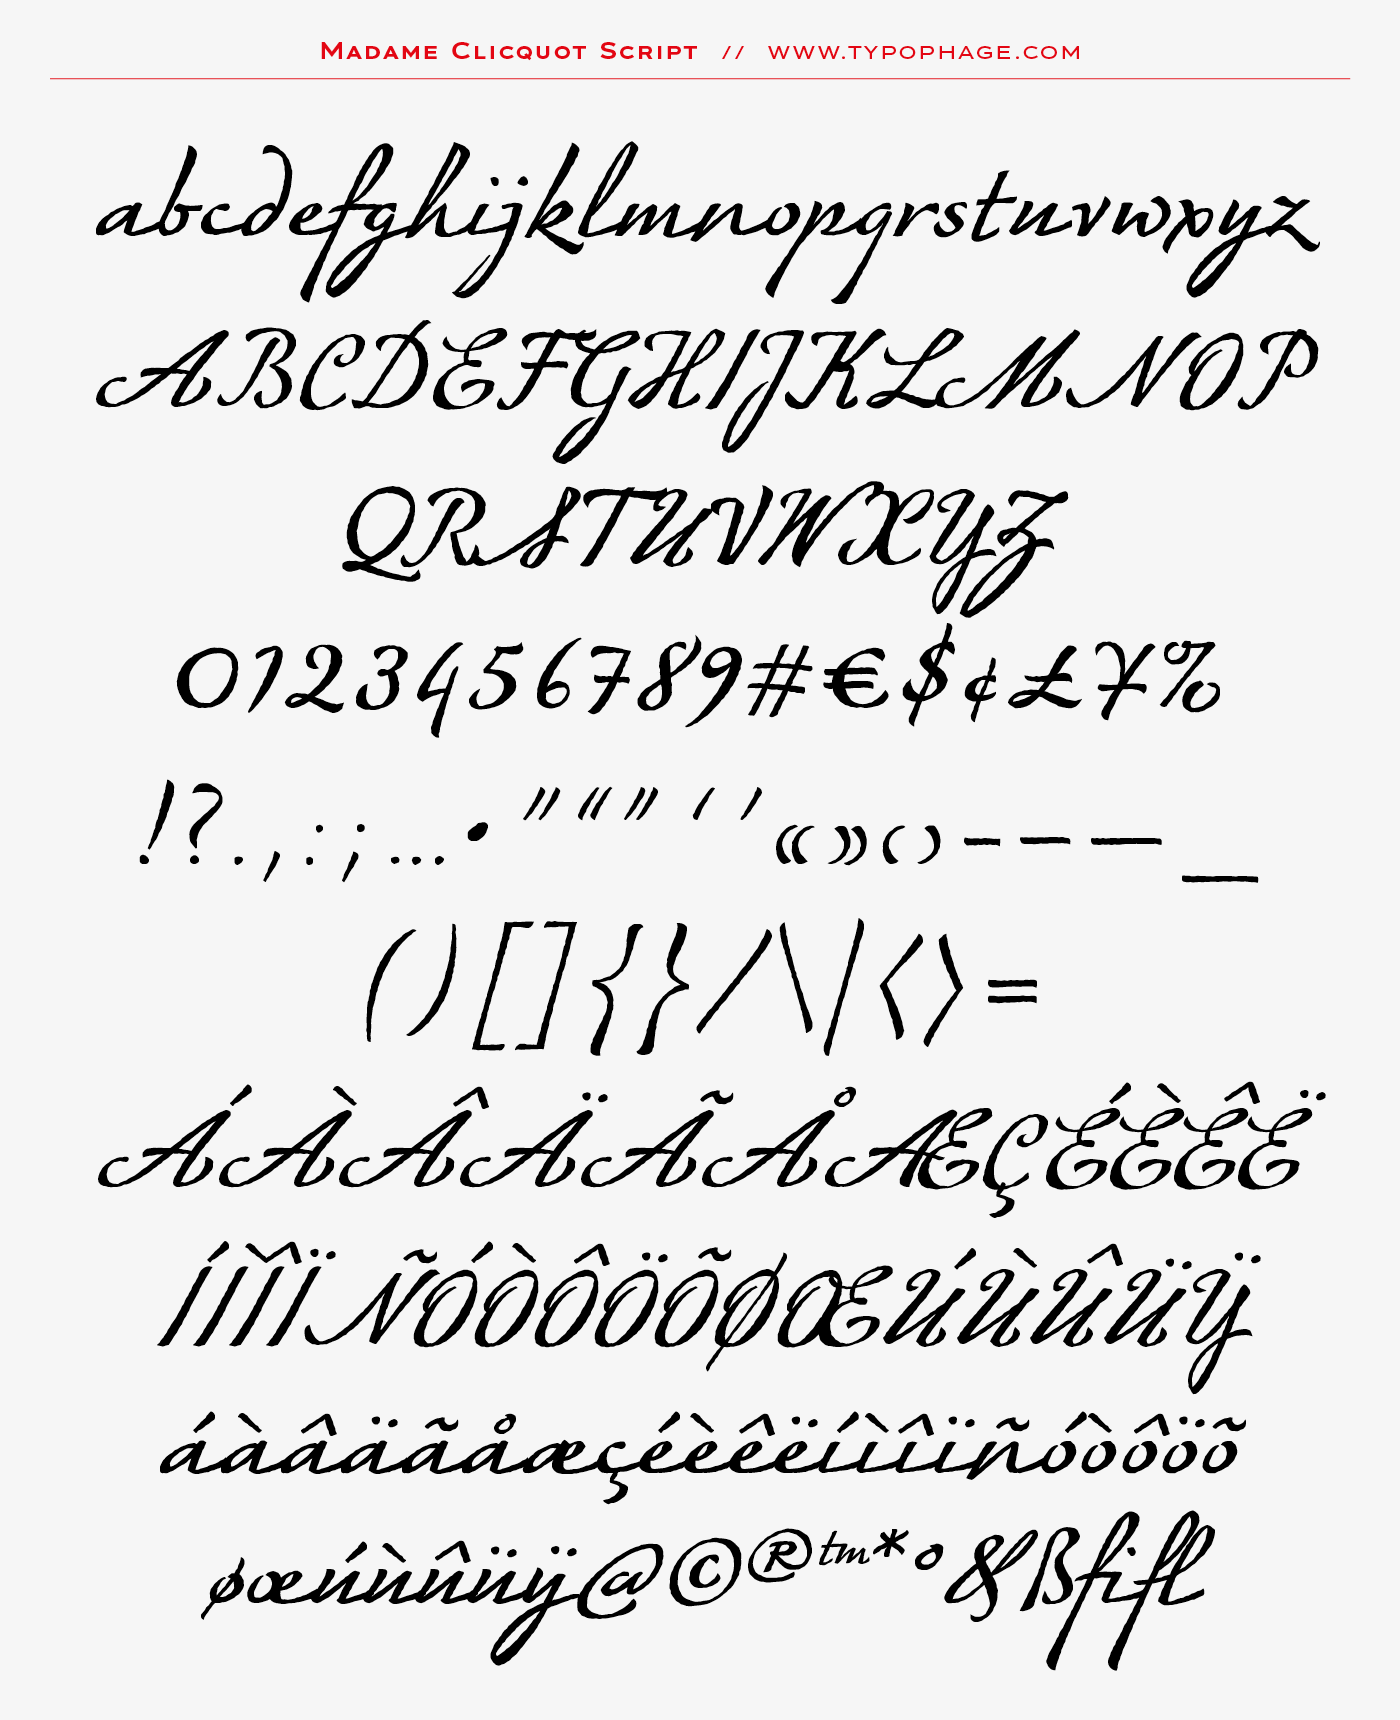 Madame Clicquot Script // www.typophage.com
abcdefghijklmnopqrstuvwxyz
ABCDEFGHIJKLMNOP
QRSTUVWXYZ
0123456789#€$¢£¥%
!?.,:;...•"“”‘’«»‹›-–—_
()[]{}/\|<>=
ÁÀÂÄÃÅÆÇÉÈÊË
ÍÌÎÏÑÓÒÔÖÕØŒÚÙÛÜŸ
áàâäãåæçéèêëíìîïñóòôöõ
øœúùûüÿ@©®™*°&ßfifl